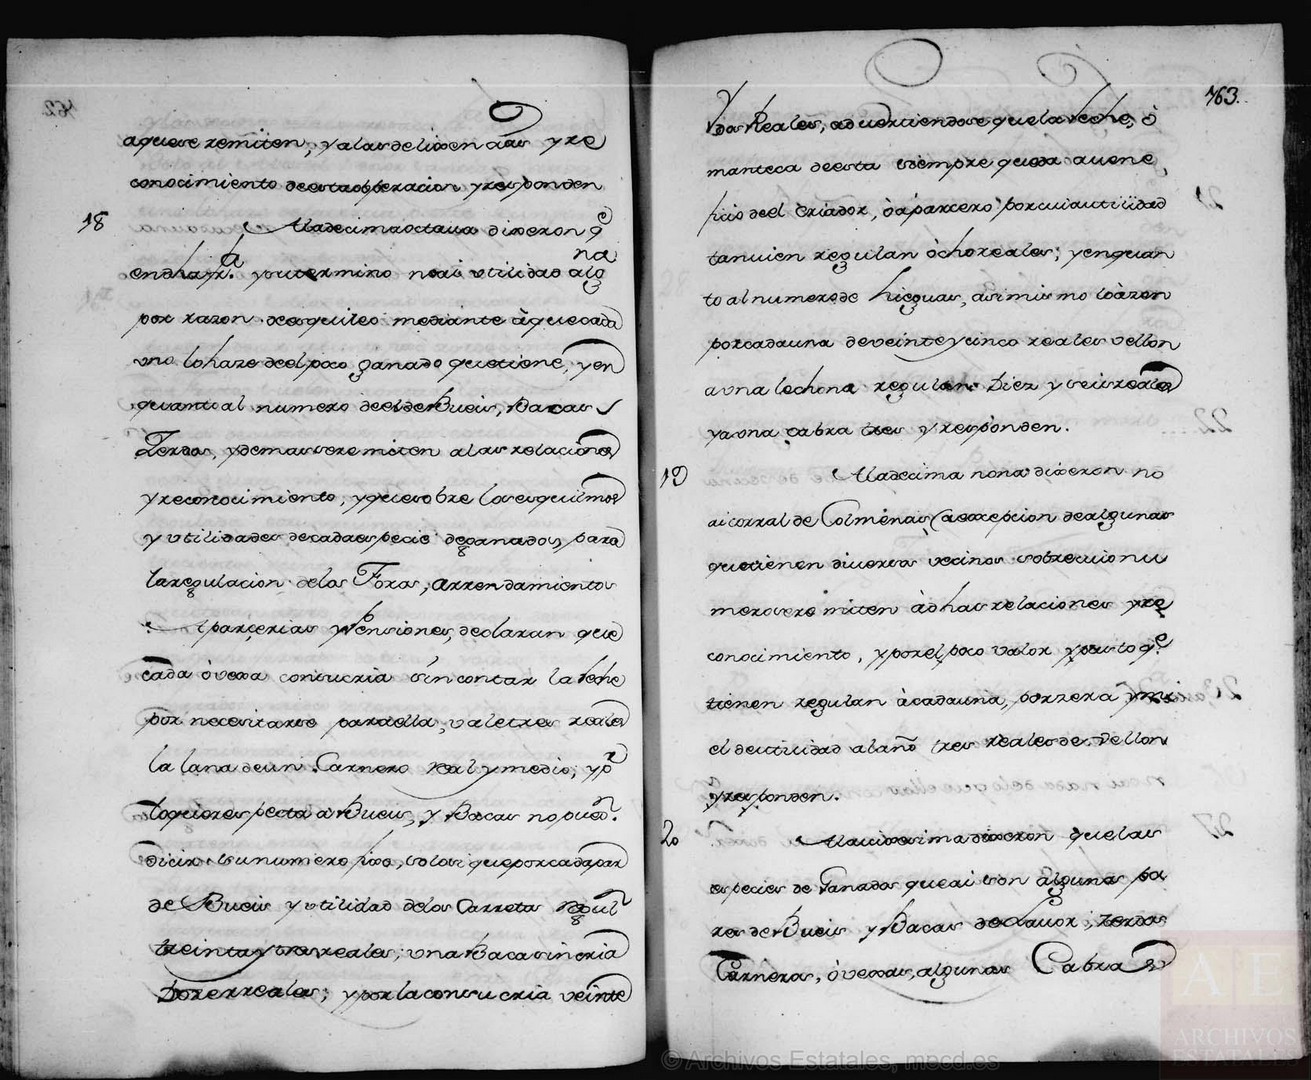 aquese remiten; y alas delixen cias y re
conocimiento deestaoperacion y responden
18 Aladecimaoctava dixeron q.e
endha fr.a y sutermino noai utilidad alg na
por razon deesquileo mediante àquecada
uno lo haze deelpoco ganado quetiene; y en
quanto al numero deelde Bueis, Bacas
Zerdos, y demas seremiten alas relaciones
y reconocimiento; y que sobre los esquilmos
y utilidades decadaespecie deganados, para
laregulacion delos Foros, arrendamientos
Aparzerias y Pensiones, declaran que
cada òvexa consucria sincontar la leche
por necesitarse paraella, valetres reales
la lana deun Carnero real y medio; y p.r
loquerespecta à Bueis, y Bacas no pued.n
Dicir su numero fixo, solosi queporcadapar
de Bueis y utilidad delos Carretos regul.n
treinta y tres reales; una Baca sin cria
Doze reales; y por la consu cria veinte
763.
y dos Reales, advertiendose que la leche, ò
manteca de esta siempre queda a vene
ficio deel Criador, ò aparcero por cuia utilidad
tanvien regulan òcho reales; y en quan
to al numero de hieguas, asimismo la razon
por cada una de veinte y cinco reales vellon
a una lechona regulan Diez y seis reales
y a una cabra tres y responden.
19 Aladecima nona dixeron no
ai corral de Colmenas, a excepcion de algunas
que tienen diversos vecinos sobre cuio nu
mero se remiten àdhas relaciones y re
conocimiento, y por el poco valor y susto q.e
tienen regulan à cada una, por zera y miel
el de utilidad al año tres reales de Vellon
y responden.
20 Ala vigesima dixeron que las
especies de Ganados que ai son algunos pa
res de Bueis y Bacas de lavor, Zerdos
Carneros, òvexas, algunas Cabras
© Archivos Estatales, mecd.es
AE
ARCHIVOS
ESTATALES